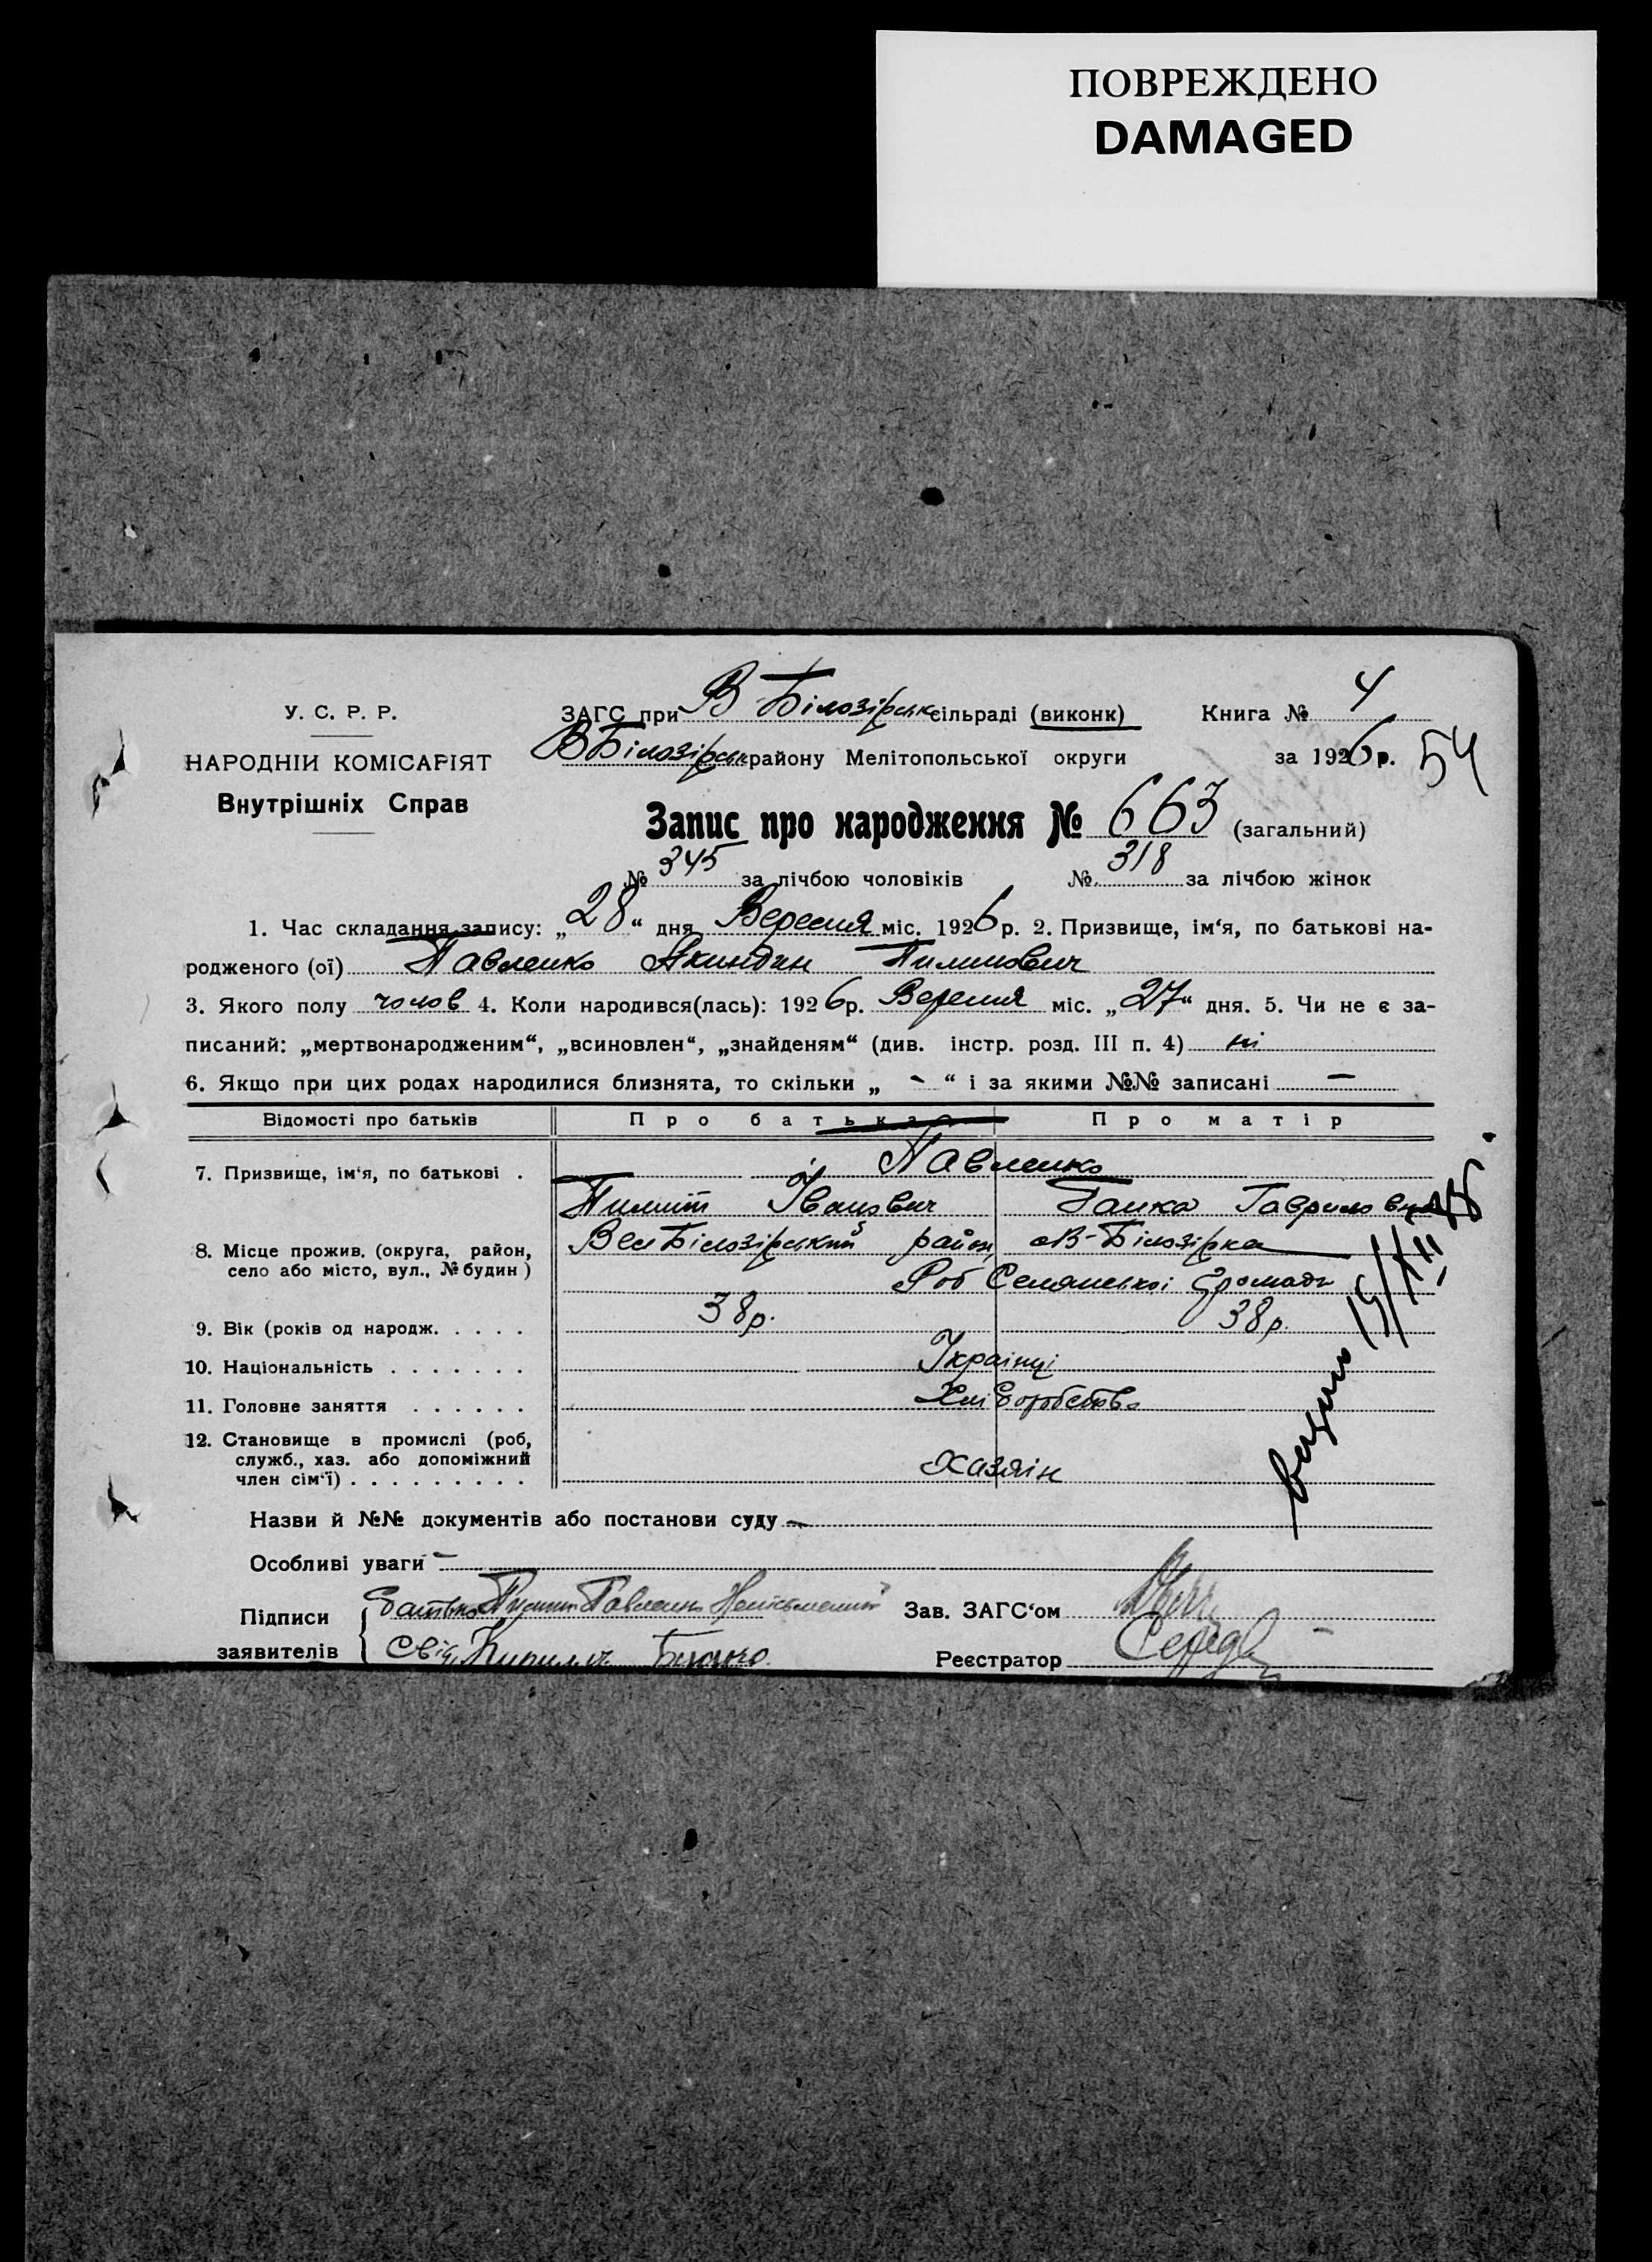 ПОВРЕЖДЕНО
DAMAGED
У. С. Р. Р.
НАРОДНІЙ КОМІСАРІЯТ
Внутрішніх Справ
ЗАГС при В Білозірськ сільраді (виконк)
В Білозірськ району Мелітопольської округи
Книга № 4
за 1926 р.
54
Запис про народження № 663 (загальний)
№ 345 за лічбою чоловіків № 318 за лічбою жінок
1. Час складання запису: „28“ дня Вересня міс. 1926 р. 2. Призвище, ім‘я, по батькові на-
родженого (ої) Павленко Акиндин Пилипович
3. Якого полу чолов 4. Коли народився(лась): 1926р. Вересня міс. „27“ дня. 5. Чи не є за-
писаний: „мертвонародженим“, „всиновлен“, „знайденям“ (див. інстр. розд. III п. 4) ні
6. Якщо при цих родах народилися близнята, то скільки „ - “ і за якими №№ записані —
Відомості про батьків Про батька Про матір
7. Призвище, ім‘я, по батькові . Павленко
Пилип Іванович Ганка Гавриловна
8. Місце прожив. (округа, район,
село або місто, вул., № будин)
Вел Білозірський район, В-Білозірка
Роб Селянської Громади
9. Вік (років од народж. . . . . 38р. 38р.
10. Національність . . . . . . . Українці
11. Головне заняття . . . . . . Хліборобство
12. Становище в промислі (роб,
служб., хаз. або допоміжний
член сім‘ї) . . . . . . . . . Хазяін
Назви й №№ документів або постанови суду —
Особливі уваги —
Підписи
заявителів
Батько Пилип Павленко Неписьменний
Свід
Зав. ЗАГС‘ом
Реєстратор